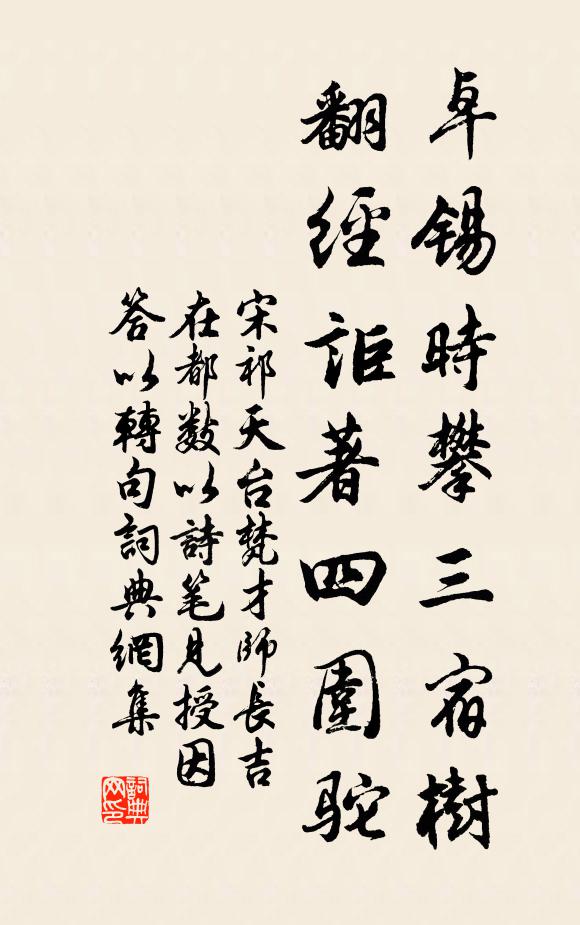 卓錫時攀三宿樹
翻經詎著四圍駝
宋祁天台梵才師長吉
在都数以詩笔見授因
答以轉句詞典網集
詞典网印